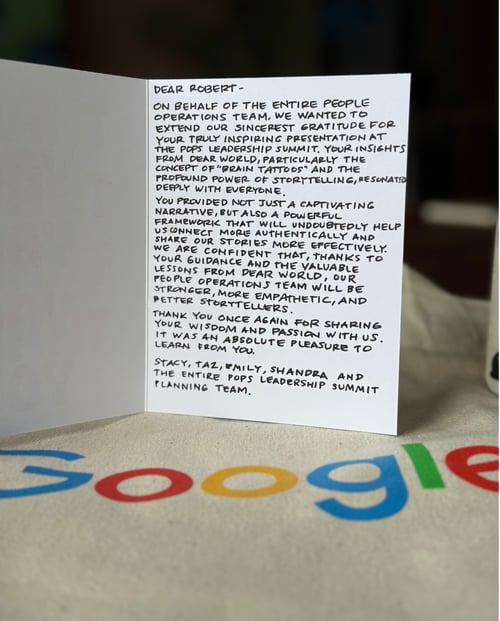 DEAR ROBERT-
ON BEHALF OF THE ENTIRE PEOPLE
OPERATIONS TEAM, WE WANTED TO
EXTEND OUR SINCEREST GRATITUDE FOR
YOUR TRULY INSPIRING PRESENTATION AT
THE POPS LEADERSHIP SUMMIT. YOUR INSIGHTS
FROM DEAR WORLD, PARTICULARLY THE
CONCEPT OF "BRAIN TATTOOS" AND THE
PROFOUND POWER OF STORYTELLING, RESONATED
DEEPLY WITH EVERYONE.
YOU PROVIDED NOT JUST A CAPTIVATING
NARRATIVE, BUT ALSO A POWERFUL
FRAMEWORK THAT WILL UNDOUBTEDLY HELP
US CONNECT MORE AUTHENTICALLY AND
SHARE OUR STORIES MORE EFFECTIVELY.
WE ARE CONFIDENT THAT, THANKS TO
YOUR GUIDANCE AND THE VALUABLE
LESSONS FROM DEAR WORLD, OUR
PEOPLE OPERATIONS TEAM WILL BE
STRONGER, MORE EMPATHETIC, AND
BETTER STORYTELLERS.
THANK YOU ONCE AGAIN FOR SHARING
YOUR WISDOM AND PASSION WITH US.
IT WAS AN ABSOLUTE PLEASURE TO
LEARN FROM YOU.
STACY, TAZ, EMILY, SHANDRA AND
THE ENTIRE POPS LEADERSHIP SUMMIT
PLANNING TEAM.
Google